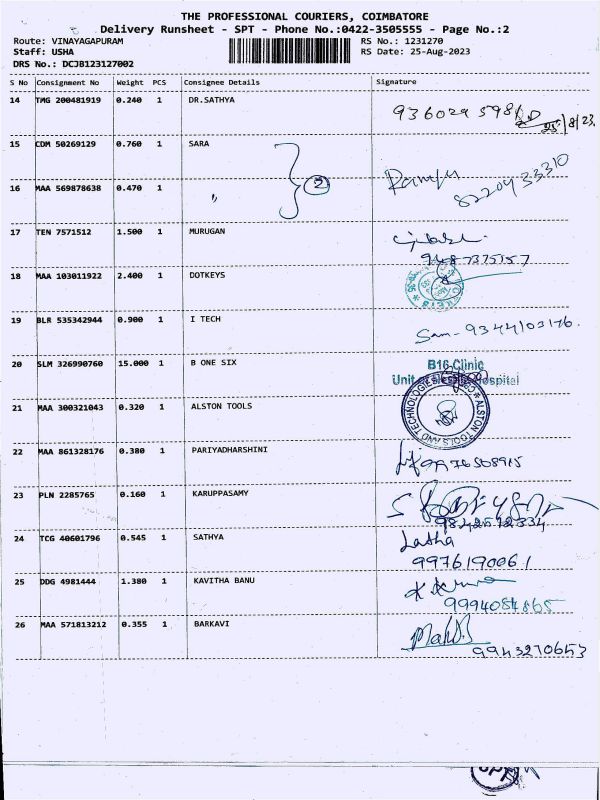 THE PROFESSIONAL COURIERS, COIMBATORE
Delivery Runsheet - SPT - Phone No.:0422-3505555 - Page No.:2
Route: VINAYAGAPURAM RS No.: 1231270
Staff: USHA RS Date: 25-Aug-2023
DRS No.: DCJB123127002
S No Consignment No Weight PCS Consignee Details Signature
14 TMG 200481919 0.240 1 DR.SATHYA
25/8/23
15 CDM 50269129 0.760 1 SARA
16 MAA 569878638 0.470 1 " 2
8220433310
17 TEN 7571512 1.500 1 MURUGAN
9487375157
18 MAA 103011922 2.400 1 DOTKEYS
19 BLR 535342944 0.900 1 I TECH
Sam- 9344103176.
20 SLM 326990760 15.000 1 B ONE SIX
B16-Clinic
Unit of Hospital
21 MAA 300321043 0.320 1 ALSTON TOOLS
ALSTON TOOLS AND TECHNOLOGIES
22 MAA 861328176 0.380 1 PARIYADHARSHINI
9976508915
23 PLN 2285765 0.160 1 KARUPPASAMY
9842512334
24 TCG 40601796 0.545 1 SATHYA
Latha
9976190061
25 DDG 4981444 1.380 1 KAVITHA BANU
9994084865
26 MAA 571813212 0.355 1 BARKAVI
9943270653